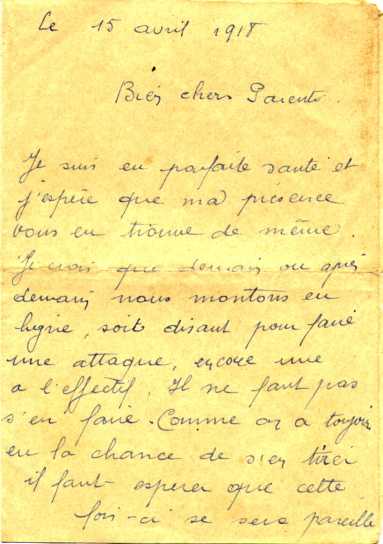 Le 15 avril 1918
Bien chers Parents.
Je suis en parfaite santé et
j'espère que ma présence
vous en trouve de même.
Je crois que demain ou après
demain nous montons en
ligne, soit disant pour faire
une attaque, encore une
a l'effectif. Il ne faut pas
s'en faire. Comme on a toujours
eu la chance de s'en tirer
il faut esperer que cette
fois-ci se sera pareille